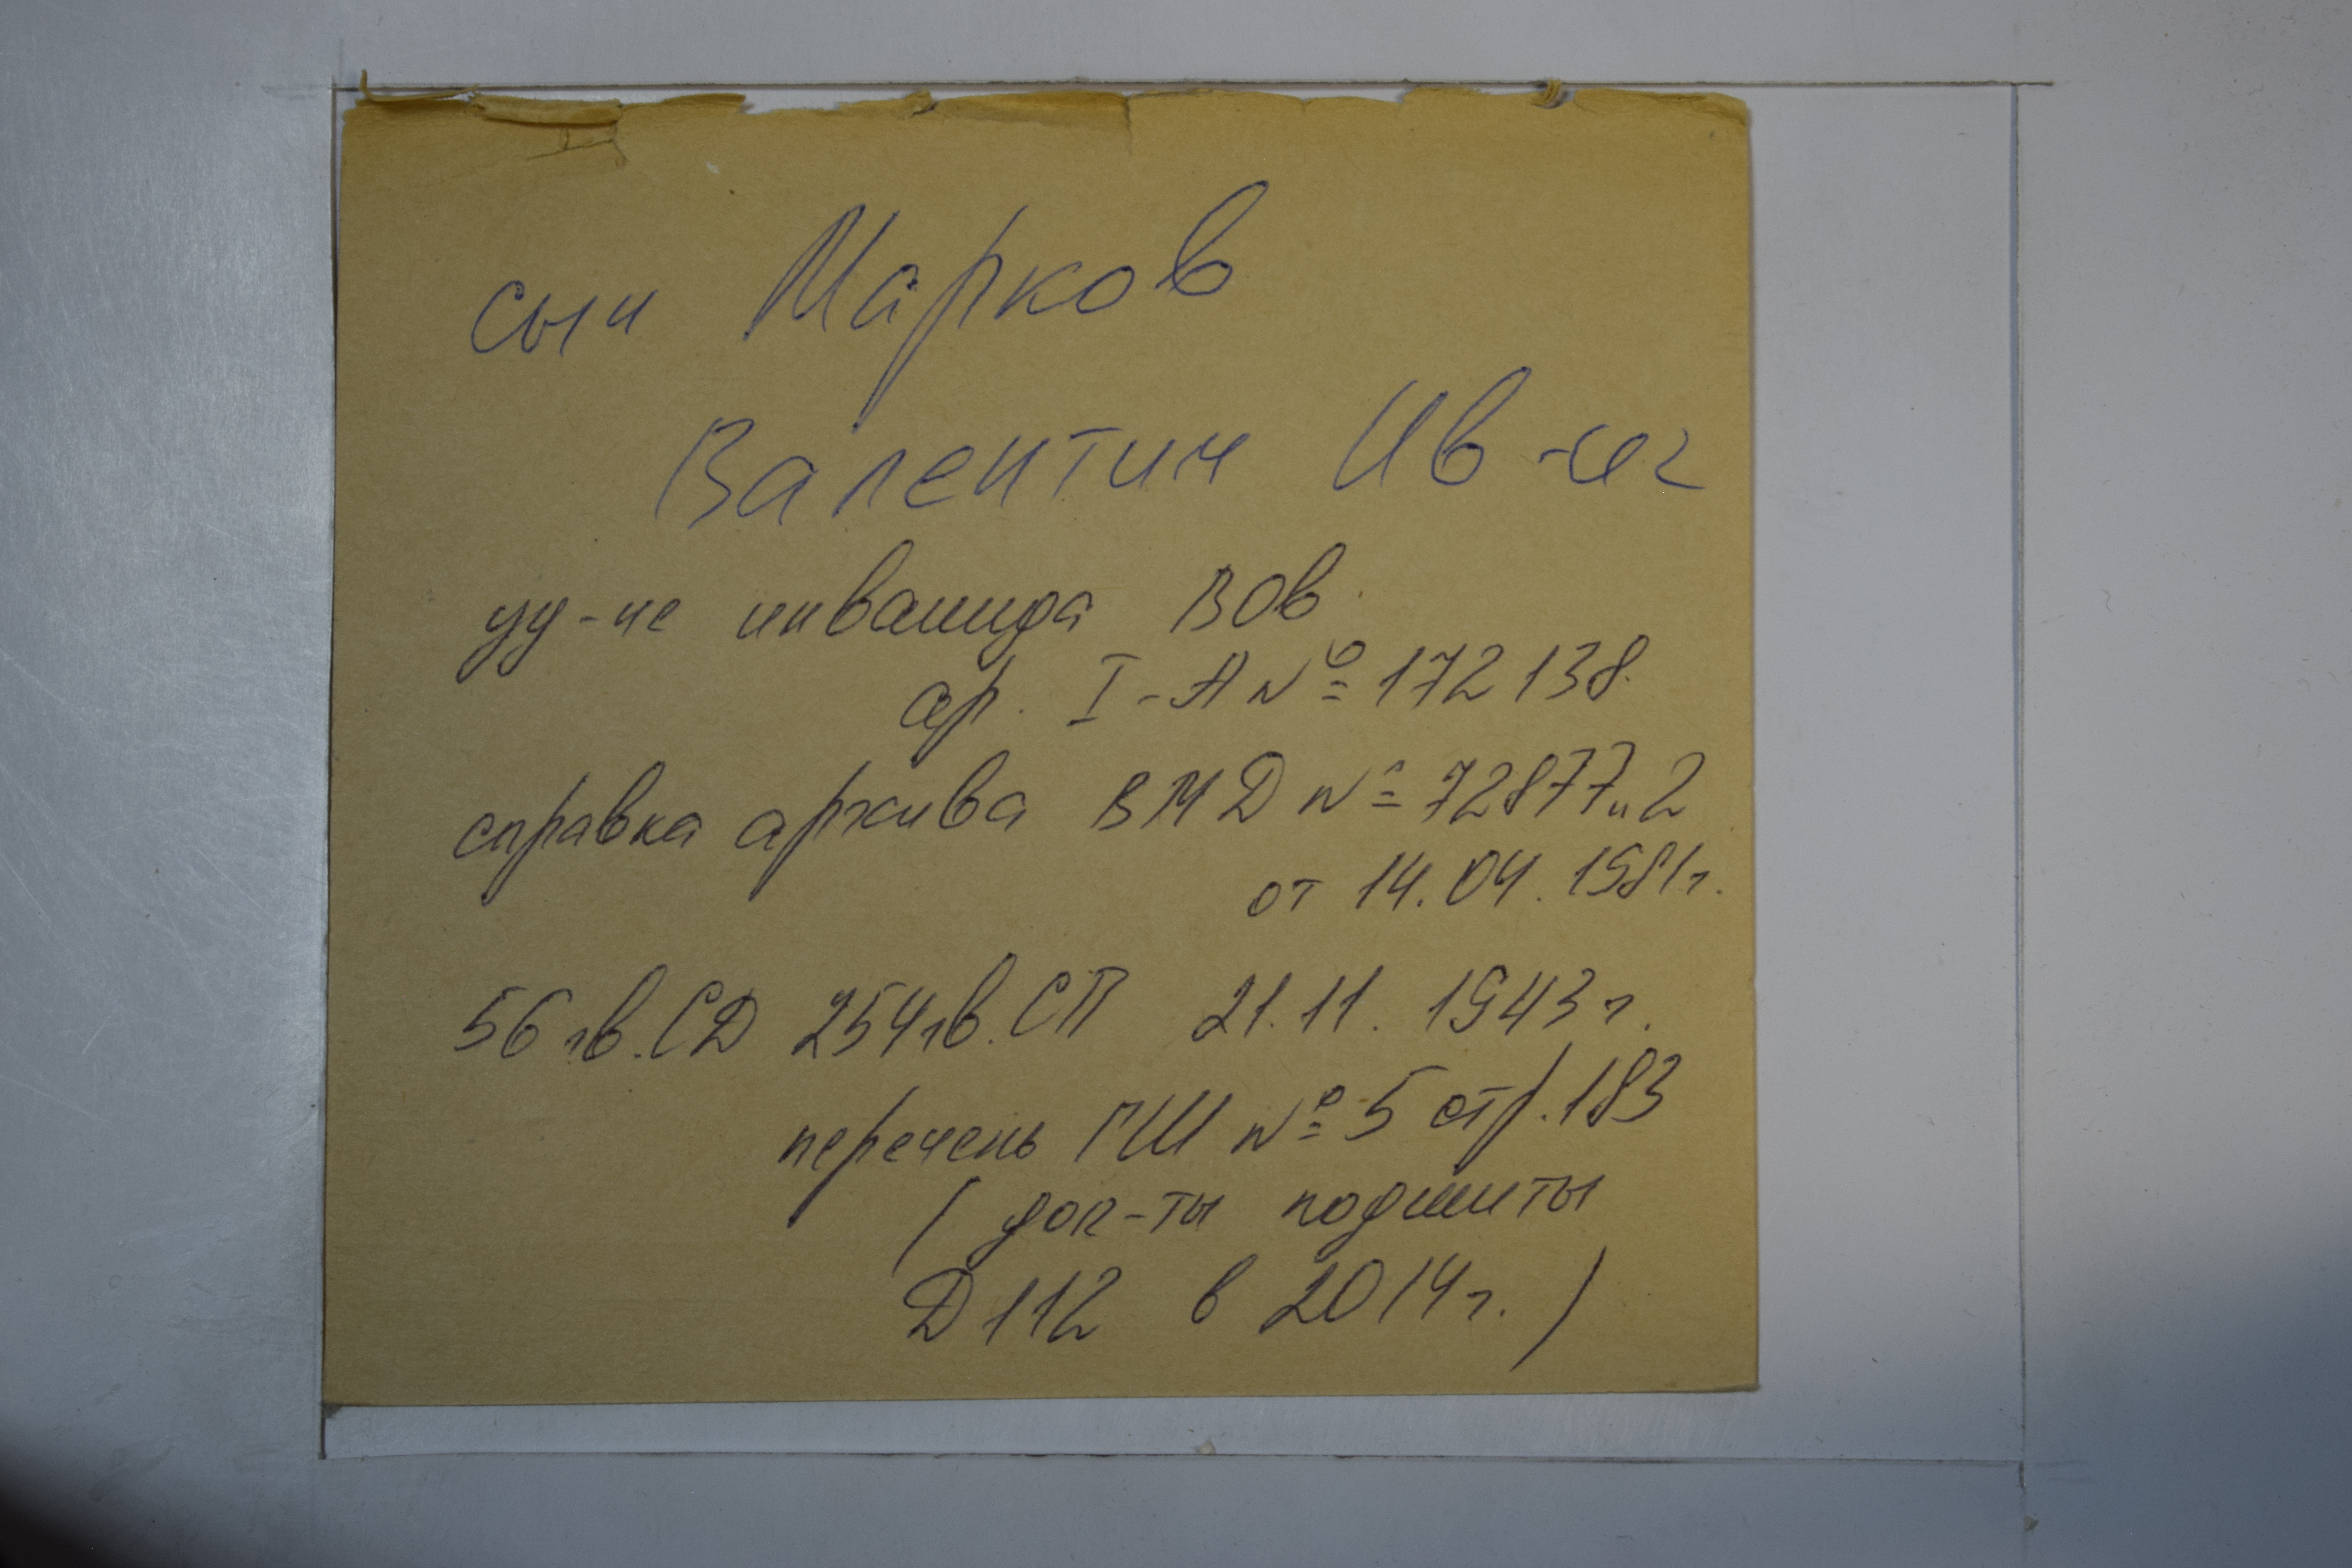 сын Марков
Валентин Ив-ч
уд-ие инвалида ВОВ.
ср. I-А № 172138.
справка архива ВМД № 72877н2
от 14.04.1981г.
56 гв. СД 254 гв. СП 21.11.1943 г.
перечень ГШ № 5 стр. 183
( док-ты подшиты
Д 112 в 2014 г. )